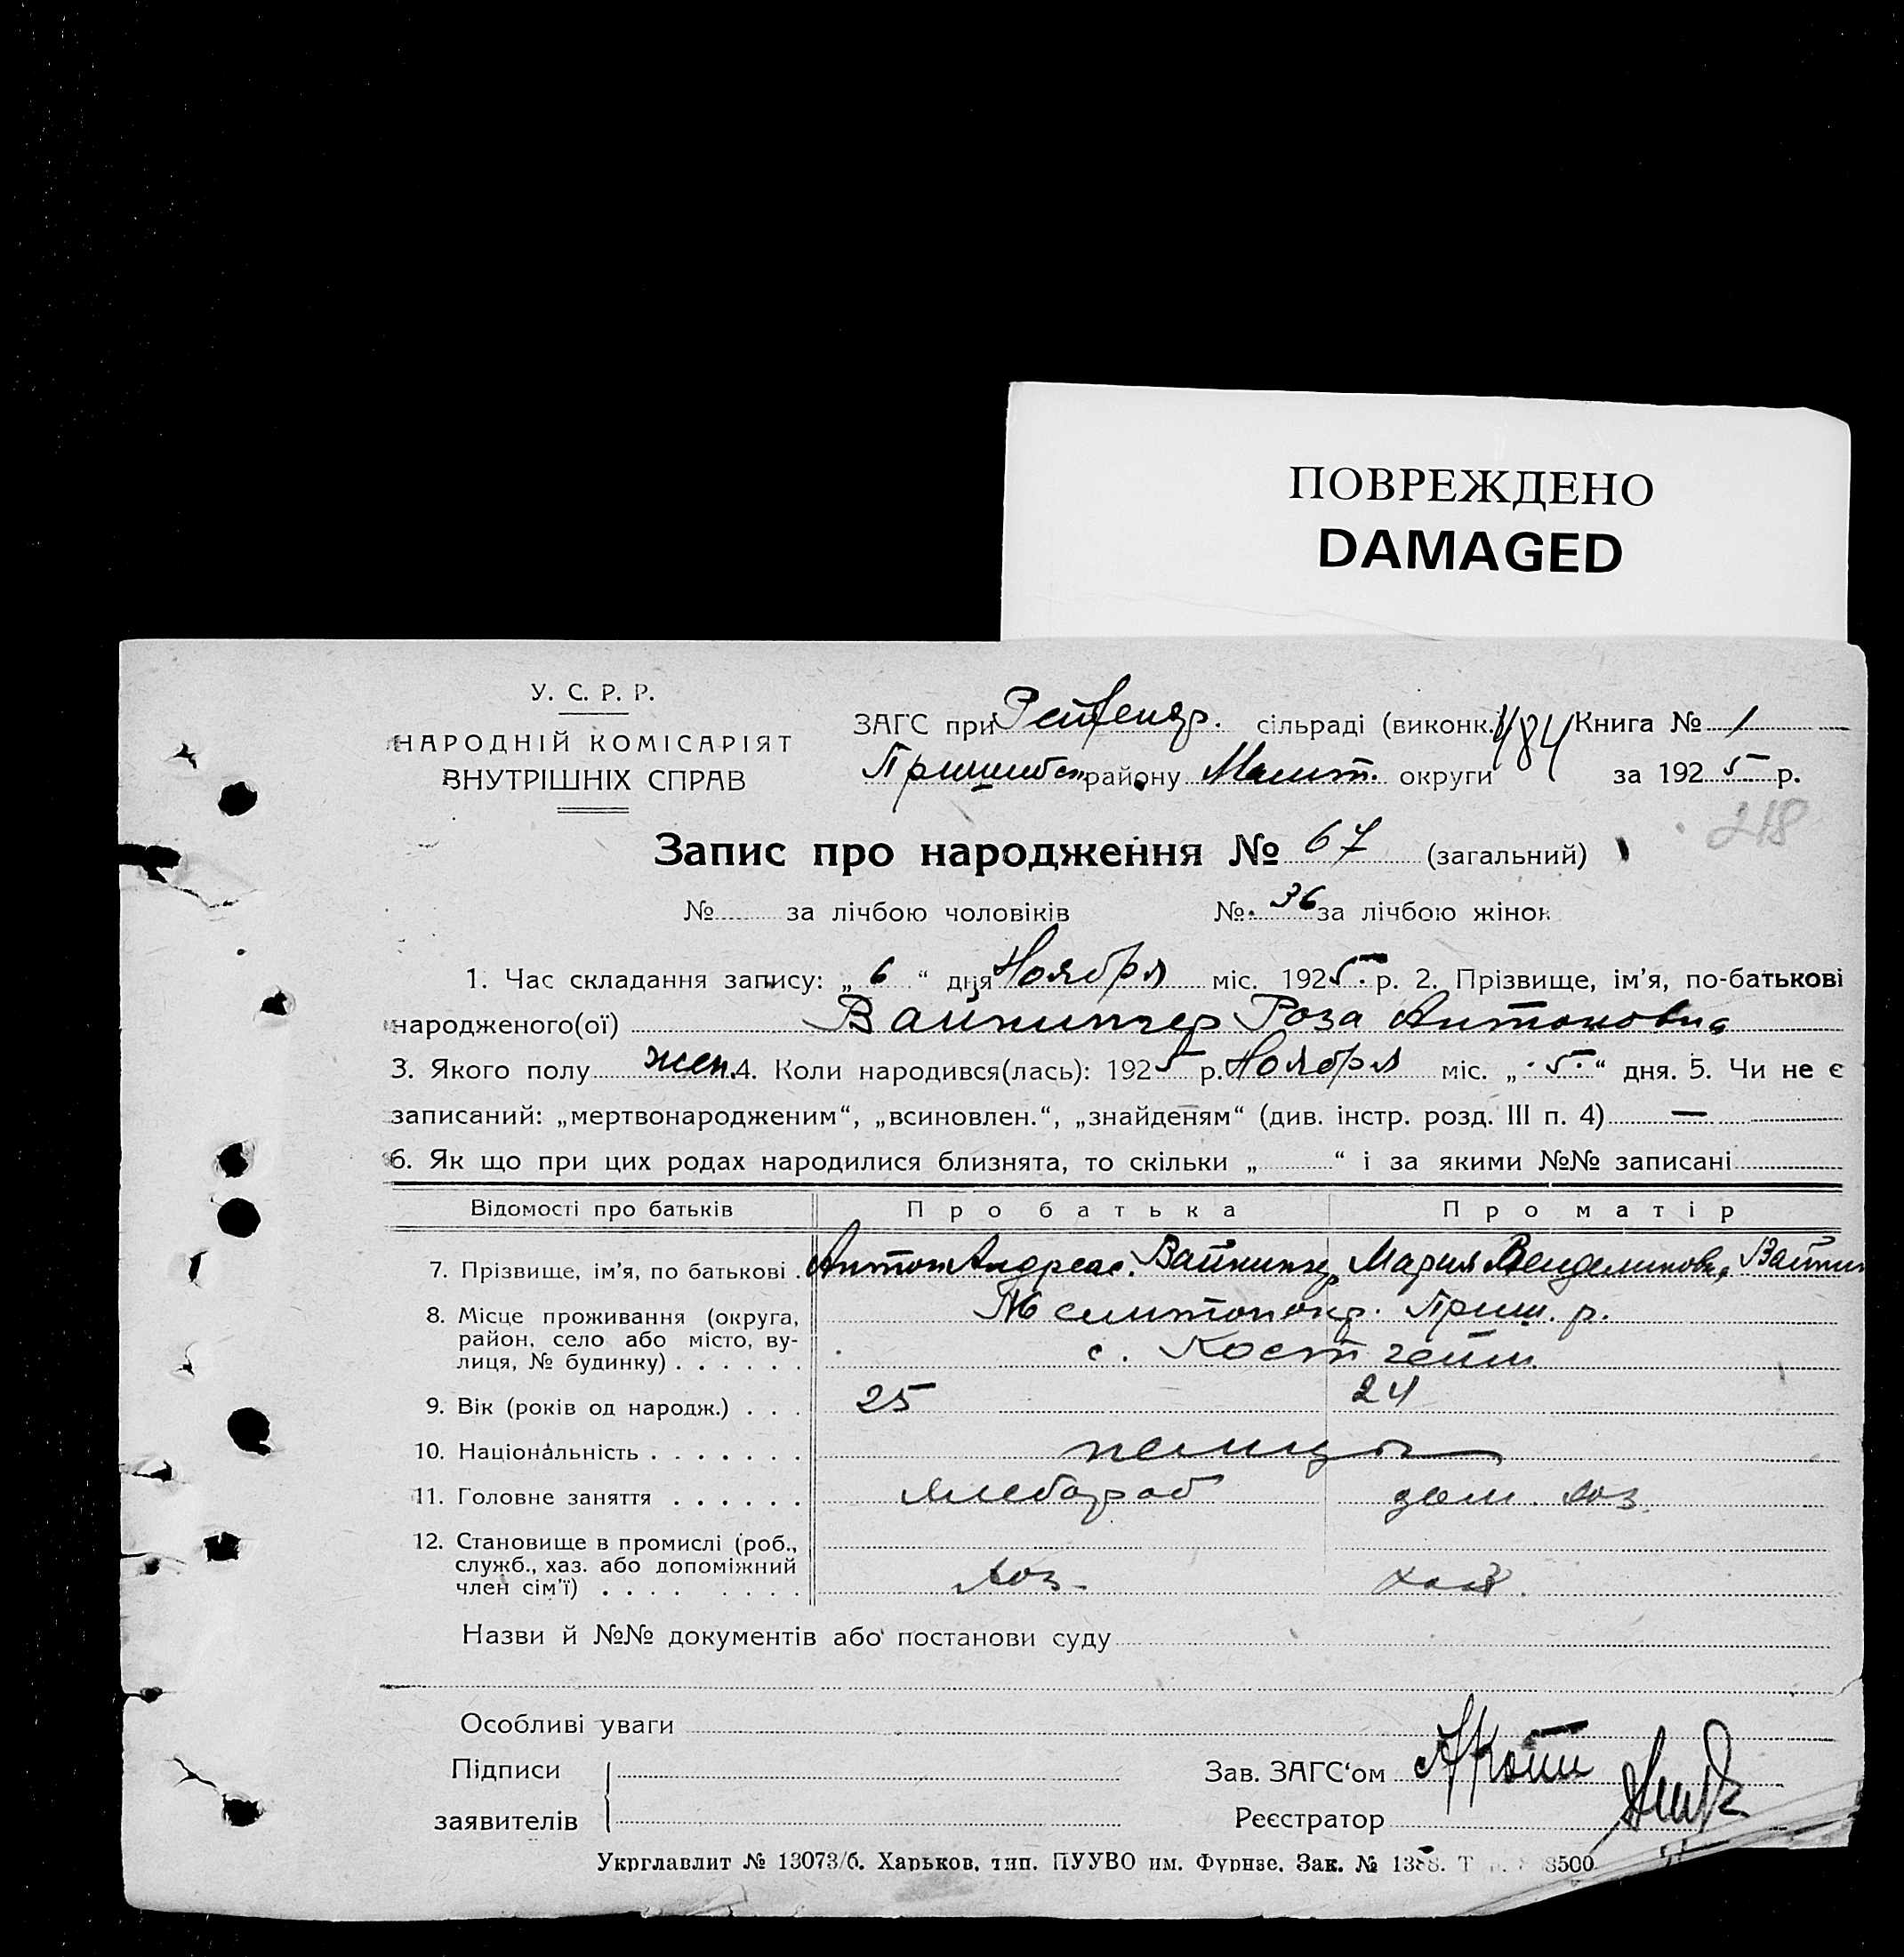 ПОВРЕЖДЕНО
DAMAGED
У. С. Р. Р.
НАРОДНІЙ КОМІСАРІЯТ
ВНУТРІШНІХ СПРАВ
ЗАГС при сільраді (виконк.) 184 Книга № 1
Пришибск. району Мелит. округи за 1925 р.
218
Запис про народження № 67 (загальний)
№ за лічбою чоловіків № 36 за лічбою жінок
1. Час складання запису: „ 6 “ дня Ноября міс. 1925 р. 2. Прізвище, ім'я, по-батькові
народженого(ої) Вайнингер Роза Антоновна
3. Якого полу жен. 4. Коли народився(лась): 1925 р. Ноября міс. „ 5 “ дня. 5. Чи не є
записаний: „мертвонародженим“, „всиновлен.“, „знайденям“ (див. інстр. розд. III п. 4) —
6. Як що при цих родах народилися близнята, то скільки „ “ і за якими №№ записані
Відомості про батьків Про батька Про матір
7. Прізвище, ім'я, по батькові . Антон Андреас. Вайнингер Мария Венделиновна Вайнин
8. Місце проживання (округа,
район, село або місто, ву-
лиця, № будинку) . . . . . .
Мелитопокр. Приш. р.
с. Костгейм
9. Вік (років од народж.) . . . 25 24
10. Національність . . . . . . . немцы
11. Головне заняття . . . . . . хлебороб дом. хоз.
12. Становище в промислі (роб.,
служб., хаз. або допоміжний
член сім'ї) . . . . . . . . хоз. хоз.
Назви й №№ документів або постанови суду
Особливі уваги
Підписи
заявителів
Зав. ЗАГС‘ом
Реєстратор
Укрглавлит № 13073/б. Харьков, тип. ПУУВО им. Фрунзе. Зак. №